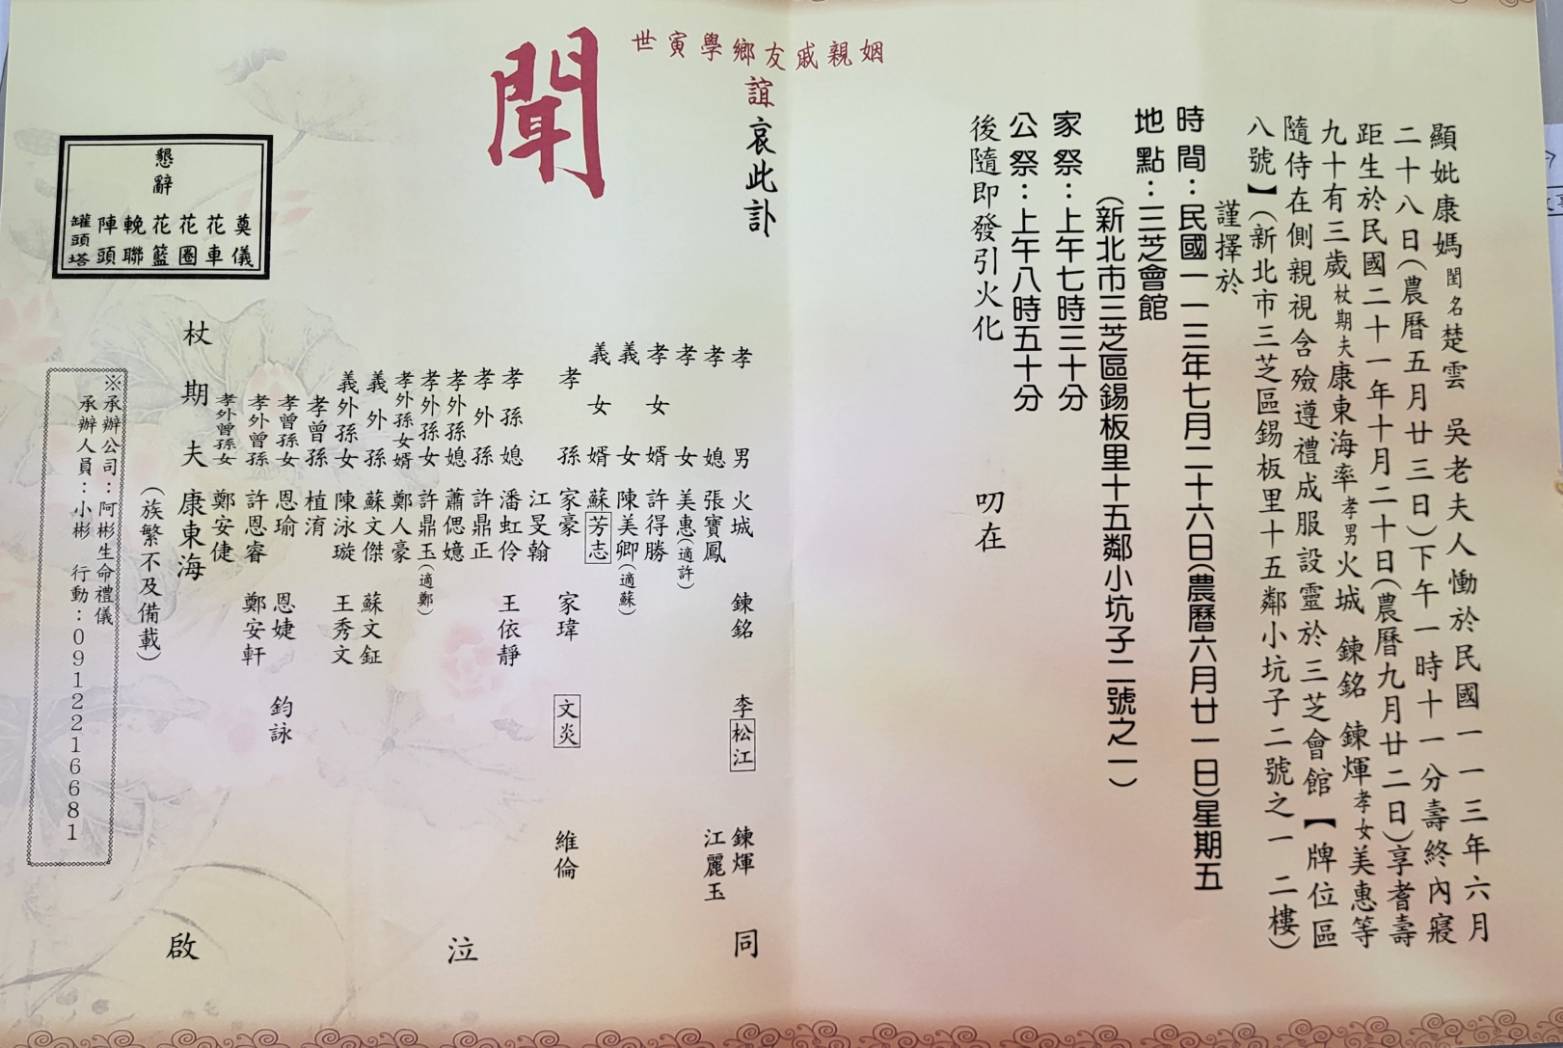 顯妣康媽閨名楚雲　吳老夫人慟於民國一一三年六月
二十八日(農曆五月廿三日)下午一時十一分壽終內寢
距生於民國二十一年十月二十日(農曆九月廿二日)享耆壽
九十有三歲杖期夫康東海率孝男火城　鍊銘　鍊煇孝女美惠等
隨侍在側親視含殮遵禮成服設靈於三芝會館【牌位區
八號】(新北市三芝區錫板里十五鄰小坑子二號之一　二樓)
謹擇於
時間：民國一一三年七月二十六日(農曆六月廿一日)星期五
地點：三芝會館
(新北市三芝區錫板里十五鄰小坑子二號之一)
家祭：上午七時三十分
公祭：上午八時五十分
後隨即發引火化　叨在
姻親戚友鄉學寅世
誼哀此訃
聞
孝男　火城　鍊銘　李松江　鍊煇　同
孝媳　張寶鳳　江麗玉
孝女　美惠(適許)
孝女婿　許得勝
義女　陳美卿(適蘇)
義女婿　蘇芳志
孝孫　家豪　家瑋　文炎　維倫
江旻翰
孝孫媳　潘虹伶　王依靜
孝外孫　許鼎正
孝外孫媳　蕭偲嬑　泣
孝外孫女　許鼎玉(適鄭)
孝外孫女婿　鄭人豪
義外孫　蘇文傑　蘇文鉦
義外孫女　陳泳璇　王秀文
孝曾孫　植淯
孝曾孫女　恩瑜　恩婕　鈞詠
孝外曾孫　許恩睿　鄭安軒
孝外曾孫女　鄭安倢
杖期夫　康東海　啟
(族繁不及備載)
懇辭
奠儀
花車
花圈
花籃
輓聯
陣頭
罐頭塔
※承辦公司：阿彬生命禮儀
承辦人員：小彬　行動：0912216681